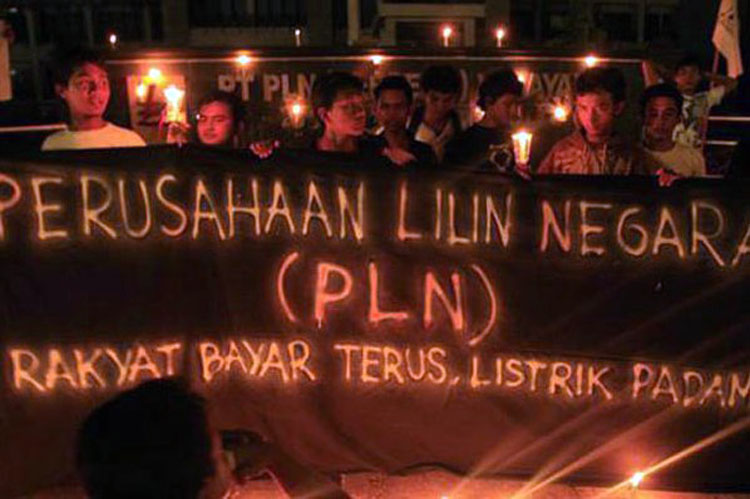 PT PLN
PERUSAHAAN LILIN NEGARA
(PLN)
RAKYAT BAYAR TERUS, LISTRIK PADAM